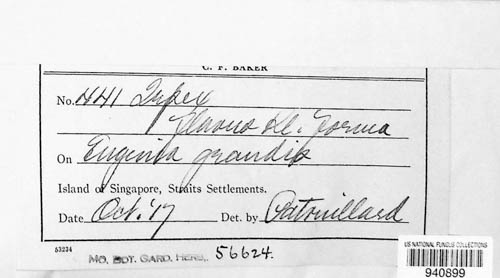 C. F. BAKER
No. 441 Irpex
flavus Kl. forma
On Eugenia grandis
Island of Singapore, Straits Settlements.
Date Oct. '17 Det. by Patouillard
53234
MO. BOT. GARD. HERB. 56624.
US NATIONAL FUNGUS COLLECTIONS
940899